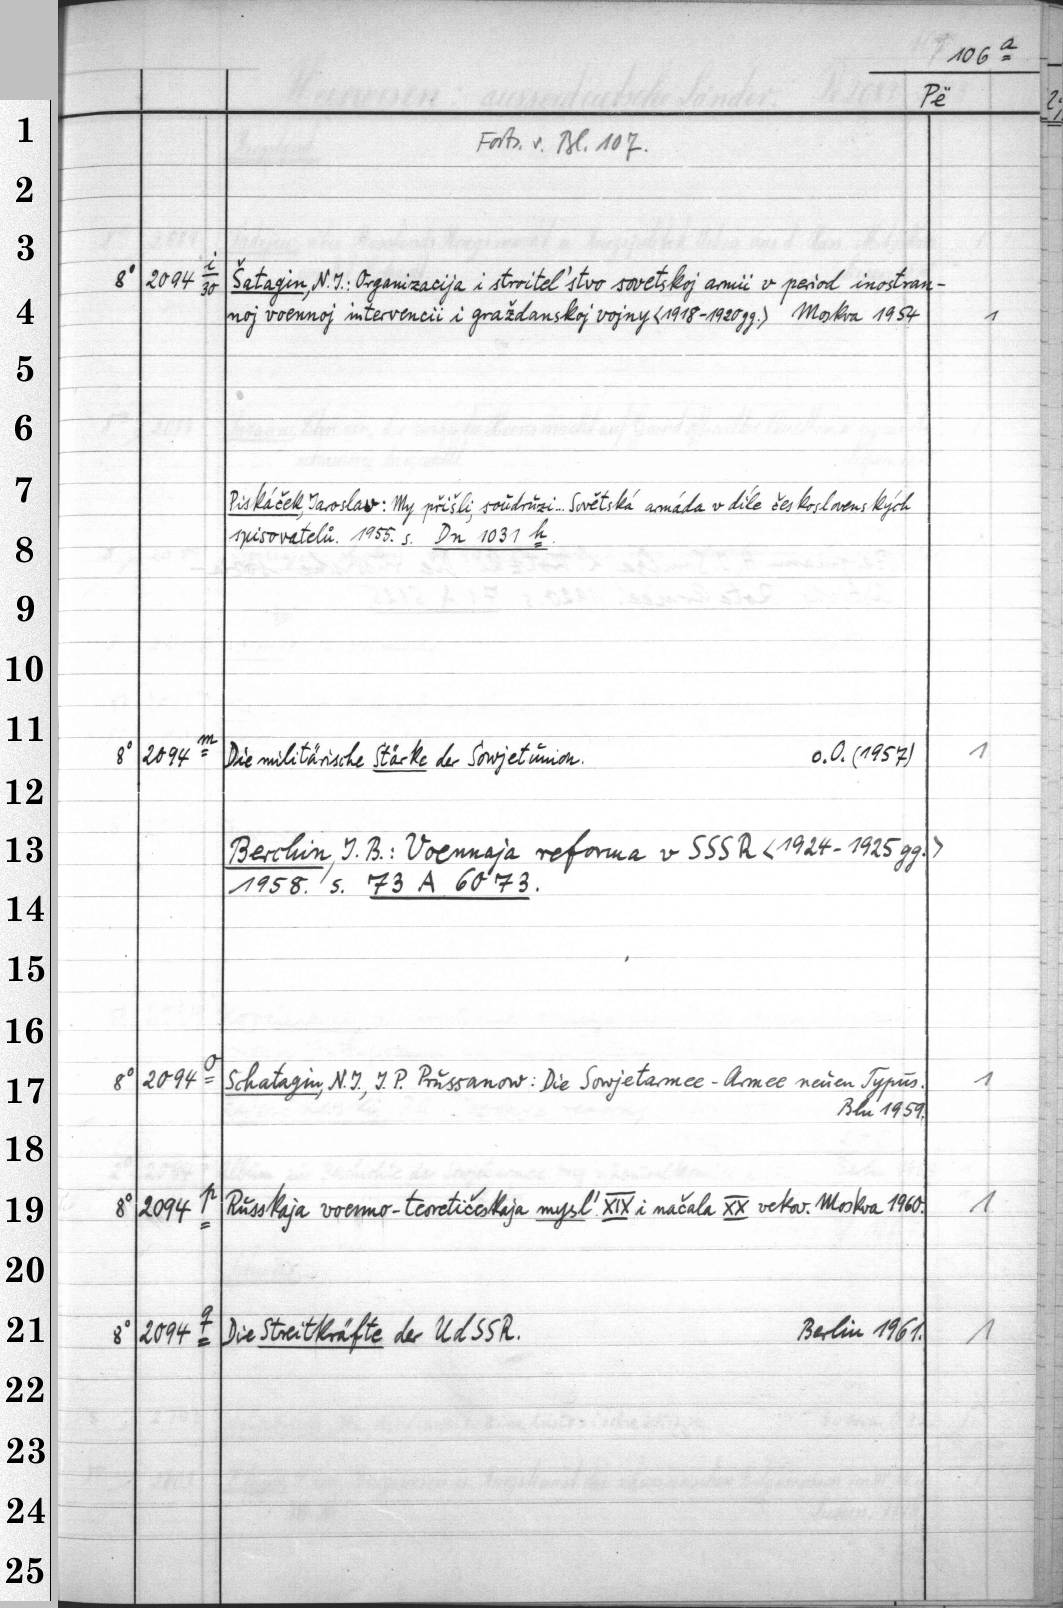 106 a
Pë
Forts. v. Bl. 107.
1
2
3
8° 2094 i/30 Šatagin, N.I.: Organizacija i stroitel'stvo sovetskoj armii v period inostran-
4 noj voennoj intervencii i graždanskoj vojny <1918-1920gg.> Moskva 1954 1
5
6
7 Piskáček, Jaroslav: My přišli, soudruzi... Sovětská armáda v díle československých
8 spisovatelů. 1955. s. Dn 1031 h.
9
10
11
8° 2094 m Die militärische Stärke der Sowjetunion. o.O. (1957) 1
12
13 Berchin, I.B.: Voennaja reforma v SSSR <1924-1925gg.>
1958. s. 73 A 6073.
14
15
16
17 8° 2094 o Schatagin, N.I., I.P. Prussanow: Die Sowjetarmee - Armee neuen Typus. 1
Bln 1959.
18
19 8° 2094 p Russkaja voenno-teoretičeskaja mysl' XIX i načala XX vekov. Moskva 1960. 1
20
21 8° 2094 q Die Streitkräfte der UdSSR. Berlin 1961. 1
22
23
24
25